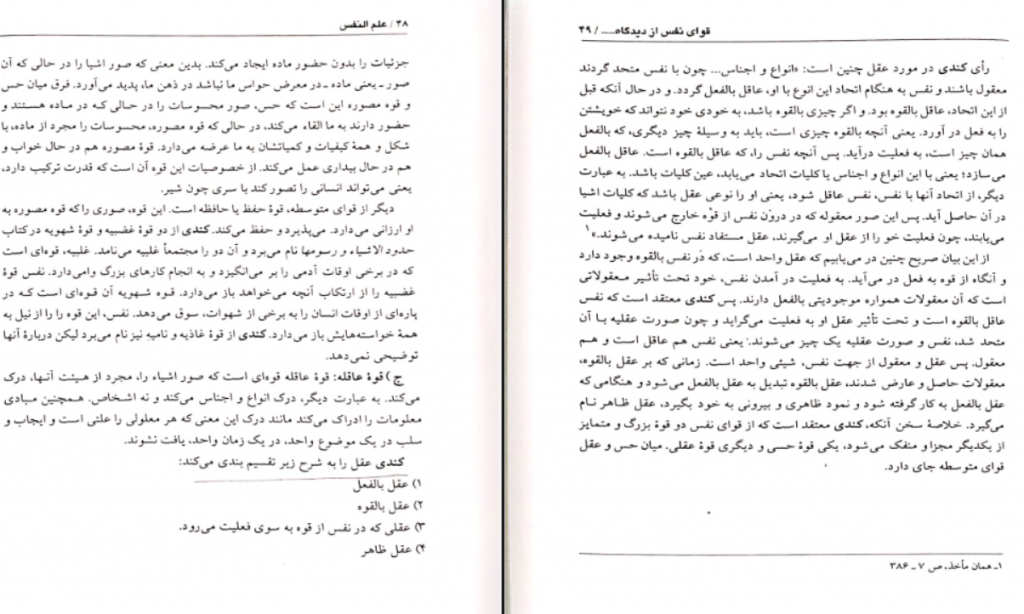 ۳۸ / علم النفس
جزئیات را بدون حضور ماده ایجاد می‌کند. بدین معنی که صور اشیا را در حالی که آن
صور ـ یعنی ماده ـ در معرض حواس ما نباشد در ذهن ما، پدید می‌آورد. فرق میان حس
و قوه مصوره این است که حس، صور محسوسات را در حالی که در ماده هستند و
حضور دارند به ما القاء می‌کند، در حالی که قوه مصوره، محسوسات را مجرد از ماده، با
شکل و همۀ کیفیات و کمیاتشان به ما عرضه می‌دارد. قوۀ مصوره هم در حال خواب و
هم در حال بیداری عمل می‌کند. از خصوصیات این قوه آن است که قدرت ترکیب دارد،
یعنی می‌تواند انسانی را تصور کند با سری چون شیر.
دیگر از قوای متوسطه، قوۀ حفظ یا حافظه است. این قوه، صوری را که قوه مصوره به
او ارزانی می‌دارد، می‌پذیرد و حفظ می‌کند. کندی از دو قوۀ غضبیه و قوۀ شهویه در کتاب
حدود الاشیاء و رسومها نام می‌برد و آن دو را مجتمعاً غلبیه می‌نامد. غلبیه، قوه‌ای است
که در برخی اوقات آدمی را بر می‌انگیزد و به انجام کارهای بزرگ وامی‌دارد. نفس قوۀ
غضبیه را از ارتکاب آنچه می‌خواهد باز می‌دارد. قوه شهویه آن قوه‌ای است که در
پاره‌ای از اوقات انسان را به برخی از شهوات، سوق می‌دهد. نفس، این قوه را را از نیل به
همۀ خواسته‌هایش باز می‌دارد. کندی از قوۀ غاذیه و نامیه نیز نام می‌برد لیکن دربارۀ آنها
توضیحی نمی‌دهد.
ج) قوۀ عاقله: قوۀ عاقله قوه‌ای است که صور اشیاء را، مجرد از هیئت آنها، درک
می‌کند. به عبارت دیگر، درک انواع و اجناس می‌کند و نه اشخاص. همچنین مبادی
معلومات را ادراک می‌کند مانند درک این معنی که هر معلولی را علتی است و ایجاب و
سلب در یک موضوع واحد، در یک زمان واحد، یافت نشوند.
کندی عقل را به شرح زیر تقسیم بندی می‌کند:
۱) عقل بالفعل
۲) عقل بالقوه
۳) عقلی که در نفس از قوه به سوی فعلیت می‌رود.
۴) عقل ظاهر
قوای نفس از دیدگاه..... / ۴۹
رأی کندی در مورد عقل چنین است: «انواع و اجناس... چون با نفس متحد گردند
معقول باشند و نفس به هنگام اتحاد این انوع با او، عاقل بالفعل گردد. و در حال آنکه قبل
از این اتحاد، عاقل بالقوه بود. و اگر چیزی بالقوه باشد، به خودی خود نتواند که خویشتن
را به فعل در آورد. یعنی آنچه بالقوه چیزی است، باید به وسیلۀ چیز دیگری، که بالفعل
همان چیز است، به فعلیت درآید. پس آنچه نفس را، که عاقل بالقوه است. عاقل بالفعل
می‌سازد؛ یعنی با این انواع و اجناس یا کلیات اتحاد می‌یابد، عین کلیات باشد. به عبارت
دیگر، از اتحاد آنها با نفس، نفس عاقل شود، یعنی او را نوعی عقل باشد که کلیات اشیا
در آن حاصل آید. پس این صور معقوله که در درون نفس از قوه خارج می‌شوند و فعلیت
می‌یابند، چون فعلیت خو را از عقل او می‌گیرند، عقل مستفاد نفس نامیده می‌شوند.»۱
از این بیان صریح چنین در می‌یابیم که عقل واحد است، که در نفس بالقوه وجود دارد
و آنگاه از قوه به فعل در می‌آید. به فعلیت در آمدن نفس، خود تحت تأثیر معقولاتی
است که آن معقولات همواره موجودیتی بالفعل دارند. پس کندی معتقد است که نفس
عاقل بالقوه است و تحت تأثیر عقل او به فعلیت می‌گراید و چون صورت عقلیه با آن
متحد شد، نفس و صورت عقلیه یک چیز می‌شوند. یعنی نفس هم عاقل است و هم
معقول. پس عقل و معقول از جهت نفس، شیئی واحد است. زمانی که بر عقل بالقوه،
معقولات حاصل و عارض شدند، عقل بالقوه تبدیل به عقل بالفعل می‌شود و هنگامی که
عقل بالفعل به کار گرفته شود و نمود ظاهری و بیرونی به خود بگیرد، عقل ظاهر نام
می‌گیرد. خلاصۀ سخن آنکه، کندی معتقد است که از قوای نفس دو قوۀ بزرگ و متمایز
از یکدیگر مجزا و منفک می‌شود، یکی قوۀ حسی و دیگری قوۀ عقلی. میان حس و عقل
قوای متوسطه جای دارد.
۱ـ همان مأخذ، ص ۷ ـ ۳۸۶